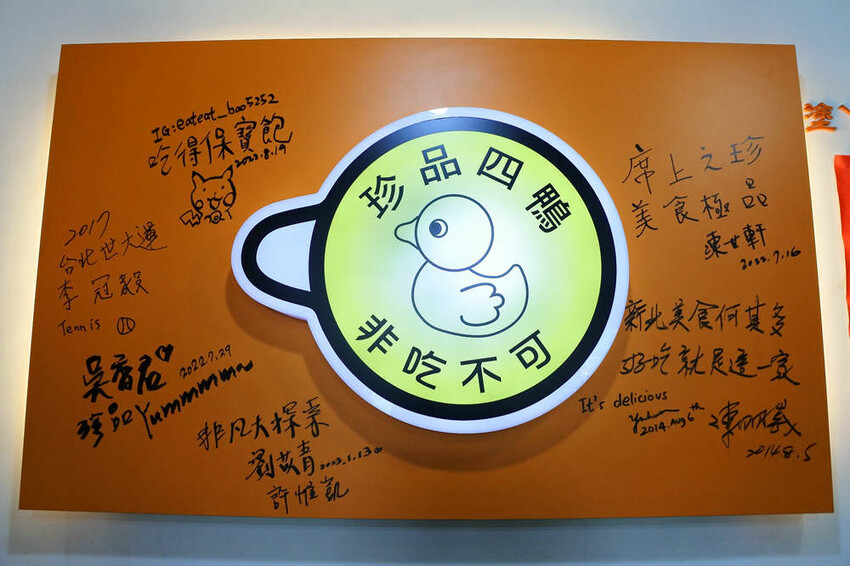 IG:eateat_boo5252
吃得保寶飽
2023.8.19
2017
台北世大運
李冠毅
Tennis
吳香君
2022.7.29
珍品Yummmmm~
非凡大探索
劉苡青
2023.1.13
許惟凱
珍品四鴨
非吃不可
席上之珍
美食極品
2022.7.16
新北美食何其多
好吃就是這一家
It's delicious
2014.Aug 6th
2014.8.5